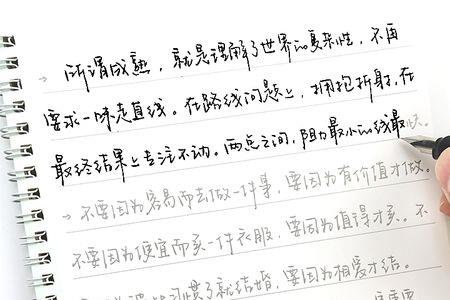 → 所谓成熟，就是理解了世界的复杂性，不再
要求一味走直线。在路线问题上，拥抱折射，在
最终结果上专注不动。两点之间，阻力最小的线最快。
→ 不要因为容易而去做一件事，要因为有价值才做。
不要因为便宜而买一件衣服，要因为值得才买。不
习惯了就结婚，要因为相爱才结。